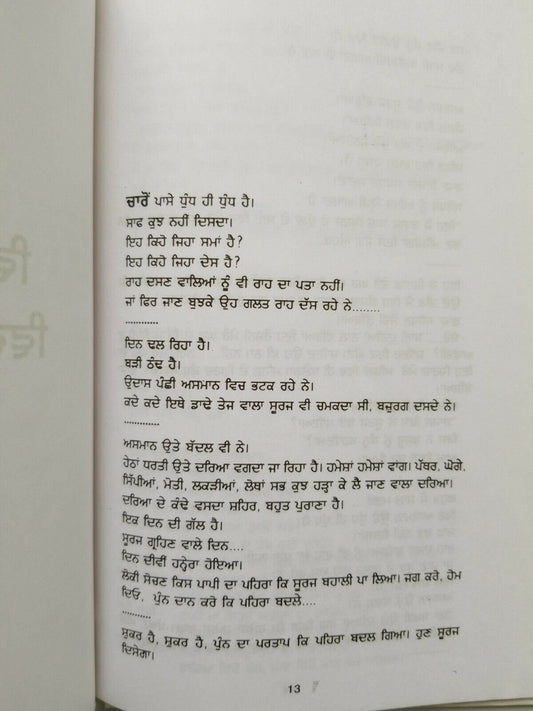 ਚਾਰੋਂ ਪਾਸੇ ਧੁੰਧ ਹੀ ਧੁੰਧ ਹੈ।
ਸਾਫ ਕੁਝ ਨਹੀਂ ਦਿਸਦਾ।
ਇਹ ਕਿਹੋ ਜਿਹਾ ਸਮਾਂ ਹੈ?
ਇਹ ਕਿਹੋ ਜਿਹਾ ਦੇਸ ਹੈ?
ਰਾਹ ਦਸਣ ਵਾਲਿਆਂ ਨੂੰ ਵੀ ਰਾਹ ਦਾ ਪਤਾ ਨਹੀਂ।
ਜਾਂ ਫਿਰ ਜਾਣ ਬੁਝਕੇ ਉਹ ਗਲਤ ਰਾਹ ਦੱਸ ਰਹੇ ਨੇ........
............
ਦਿਨ ਢਲ ਰਿਹਾ ਹੈ।
ਬੜੀ ਠੰਢ ਹੈ।
ਉਦਾਸ ਪੰਛੀ ਅਸਮਾਨ ਵਿਚ ਭਟਕ ਰਹੇ ਨੇ।
ਕਦੇ ਕਦੇ ਇਥੇ ਡਾਢੇ ਤੇਜ ਵਾਲਾ ਸੂਰਜ ਵੀ ਚਮਕਦਾ ਸੀ, ਬਜ਼ੁਰਗ ਦਸਦੇ ਨੇ।
.............
ਅਸਮਾਨ ਉਤੇ ਬੱਦਲ ਵੀ ਨੇ।
ਹੇਠਾਂ ਧਰਤੀ ਉਤੇ ਦਰਿਆ ਵਗਦਾ ਜਾ ਰਿਹਾ ਹੈ। ਹਮੇਸ਼ਾਂ ਹਮੇਸ਼ਾਂ ਵਾਂਗ। ਪੱਥਰ, ਘੋਗੇ,
ਸਿੱਪੀਆਂ, ਮੋਤੀ, ਲਕੜੀਆਂ, ਲੋਥਾਂ ਸਭ ਕੁਝ ਹੜ੍ਹਾ ਕੇ ਲੈ ਜਾਣ ਵਾਲਾ ਦਰਿਆ।
ਦਰਿਆ ਦੇ ਕੰਢੇ ਵਸਦਾ ਸ਼ਹਿਰ, ਬਹੁਤ ਪੁਰਾਣਾ ਹੈ।
ਇਕ ਦਿਨ ਦੀ ਗੱਲ ਹੈ।
ਸੂਰਜ ਗ੍ਰਹਿਣ ਵਾਲੇ ਦਿਨ....
ਦਿਨ ਦੀਵੀਂ ਹਨ੍ਹੇਰਾ ਹੋਇਆ।
ਲੋਕੀ ਸੋਚਣ ਕਿਸ ਪਾਪੀ ਦਾ ਪਹਿਰਾ ਕਿ ਸੂਰਜ ਬਹਾਲੀ ਪਾ ਲਿਆ। ਜਗ ਕਰੋ, ਹੋਮ
ਦਿਓ, ਪੁੰਨ ਦਾਨ ਕਰੋ ਕਿ ਪਹਿਰਾ ਬਦਲੇ....
...........
ਸ਼ੁਕਰ ਹੈ, ਸ਼ੁਕਰ ਹੈ, ਪੁੰਨ ਦਾ ਪਰਤਾਪ ਕਿ ਪਹਿਰਾ ਬਦਲ ਗਿਆ। ਹੁਣ ਸੂਰਜ
ਦਿਸੇਗਾ।
13